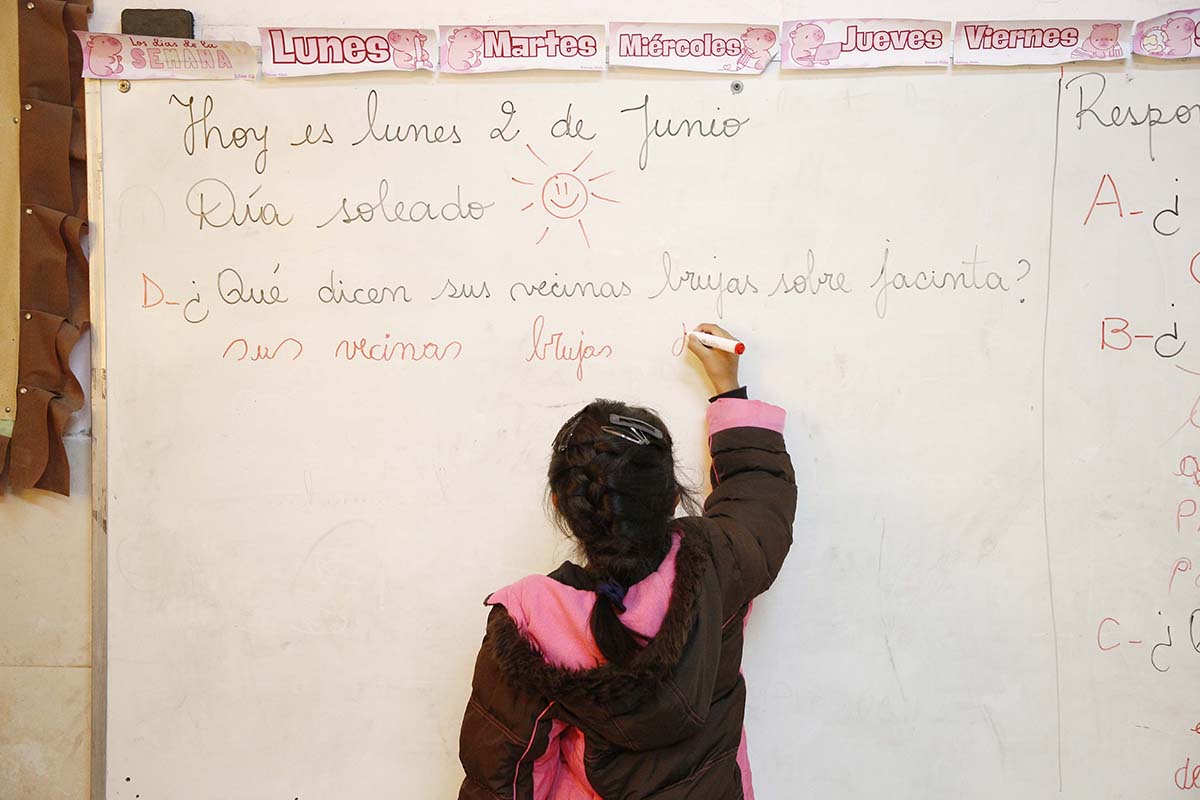 Los días de la SEMANA
Lunes
Martes
Miércoles
Jueves
Viernes
Hoy es lunes 2 de Junio
Día soleado
D-¿Qué dicen sus vecinas brujas sobre Jacinta?
sus vecinas brujas d
A-¿
B-¿
C-¿